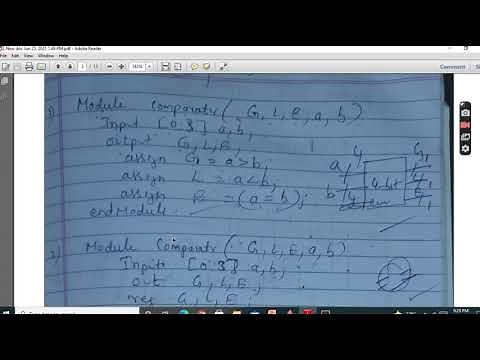 New doc Jun 25, 2021 1.49 PM.pdf - Adobe Reader
File Edit View Window Help
Comment
1)
Module Comparatr ( G, L, E, a, b)
Input [0 3] a, b,
output G, L, E,
assign G = a > b,
assign L = a < b,
assign E = (a = b);
endModule
a 4
b 4
4 bit
G 1
2)
Module Comparatr ( G, L, E, a, b)
Input [0 3] a, b,
out G, L, E,
reg G, L, E,
9:29 PM